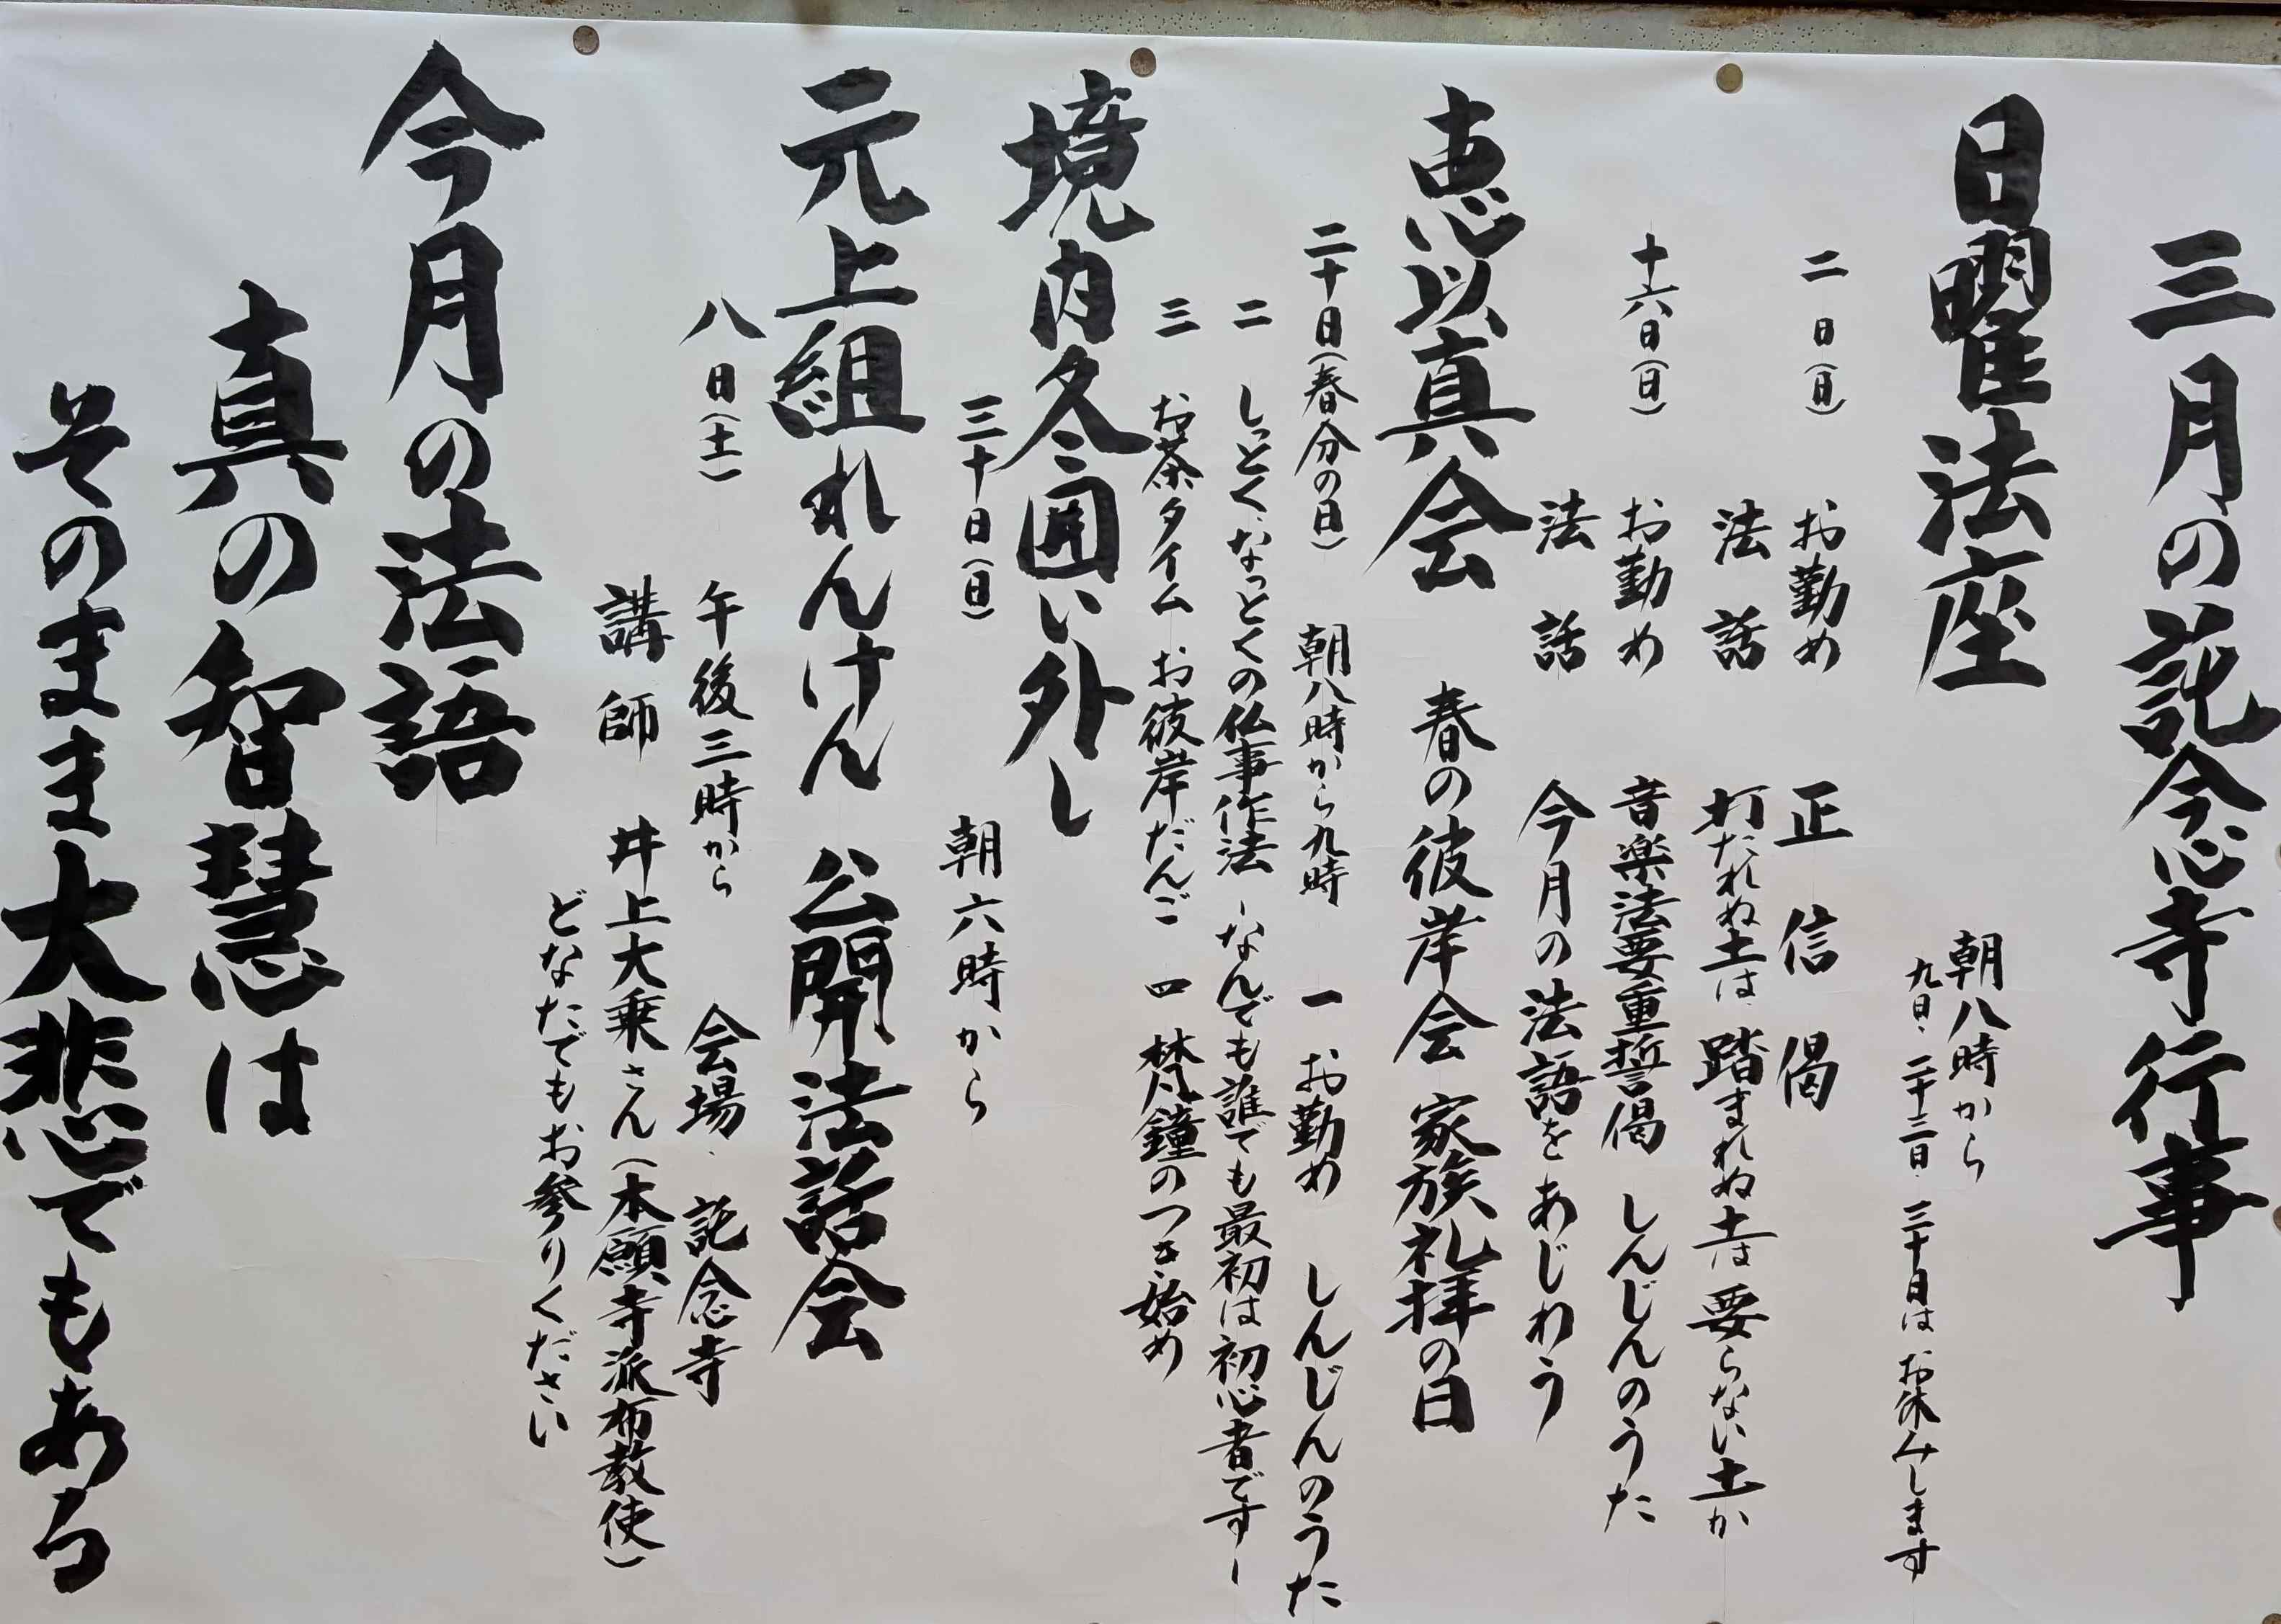 三月の託念寺行事
日曜法座
朝八時から
九日・二十三日・三十日はお休みします
二日(日) お勤め 正信偈
法話 打たれぬ土は踏まれぬ土は要らない土か
十六日(日) お勤め 音楽法要重誓偈 しんじんのうた
法話 今月の法語をあじわう
恵以真会 春の彼岸会 家族礼拝の日
二十日(春分の日) 朝八時から九時 一 お勤め しんじんのうた
二 しっとくなっとくの仏事作法 -なんでも誰でも最初は初心者です-
三 お茶タイム お彼岸だんご 四 梵鐘のつき始め
境内冬囲い外し
三十日(日) 朝六時から
元上組れんけん 公開法話会
八日(土) 午後三時から 会場・託念寺
講師 井上大乗さん(本願寺派布教使)
どなたでもお参りください
今月の法語
真の智慧は
そのまま大悲でもある